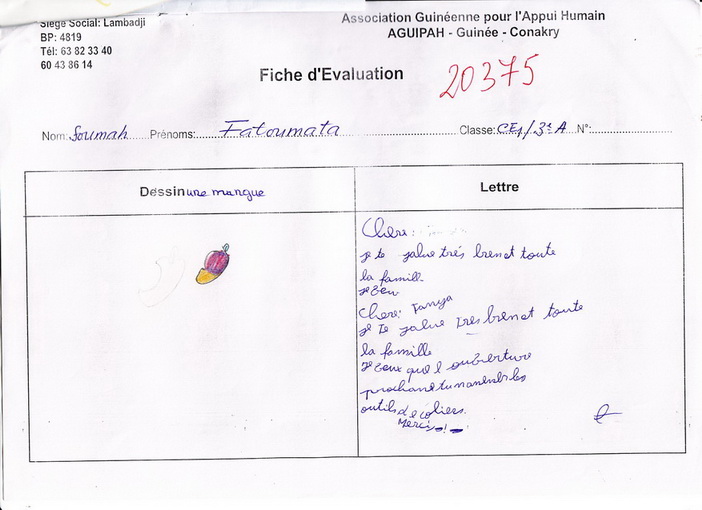 Siège Social: Lambadji
BP: 4819
Tél: 63 82 33 40
60 43 86 14
Association Guinéenne pour l'Appui Humain
AGUIPAH - Guinée - Conakry
Fiche d'Evaluation
20375
Nom: Soumah Prénoms: Fatoumata Classe: CE1/3è A N°:
Dessin une mangue
Lettre
Chere:
je te salue très bren et toute
la famill
je zeu
Chere: Fanya
je te salue tres bren et toute
la famille
je zeux que l ouverture
prochane tu
outils d ecoliers.
Merci